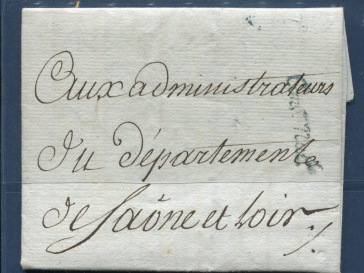 Aux administrateurs
Du département
de Saône et loir